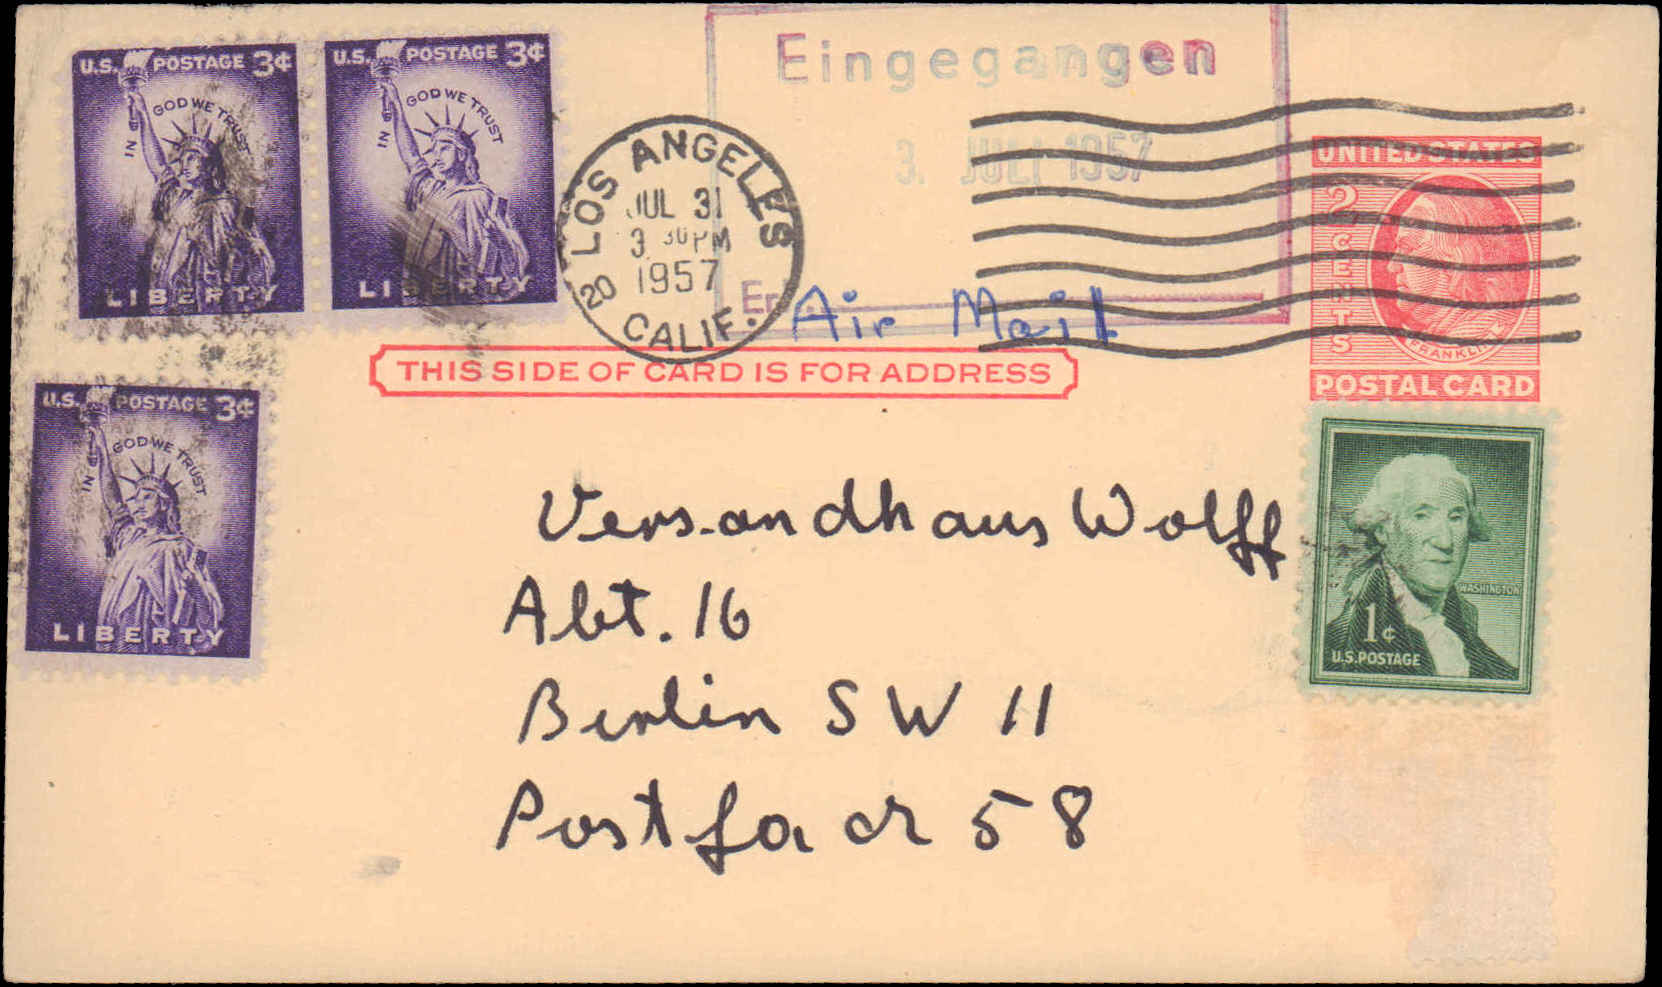 U.S. POSTAGE 3¢
IN GOD WE TRUST
LIBERTY
U.S. POSTAGE 3¢
IN GOD WE TRUST
LIBERTY
Eingegangen
3. JULI 1957
LOS ANGELES
JUL 31
3 30 PM
1957
20
CALIF.
Air Mail
UNITED STATES
2 CENTS
FRANKLIN
POSTAL CARD
THIS SIDE OF CARD IS FOR ADDRESS
U.S. POSTAGE 3¢
IN GOD WE TRUST
LIBERTY
Versandhaus Wolff
Abt. 16
Berlin SW 11
Postfach 58
WASHINGTON
1¢
U.S. POSTAGE